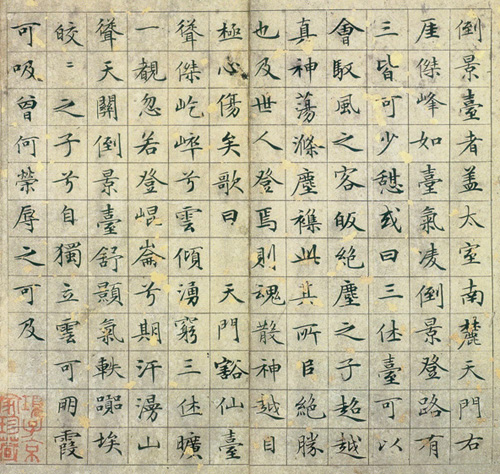 倒景臺者蓋太室南麓天門右
厓傑峰如臺氣凌倒景登路有
三皆可少憇或曰三休臺可以
會馭風之客皈絕塵之子超越
真神蕩滌塵襍此其所㠯絕勝
也及世人登焉則魂散神越目
極心傷矣歌曰　天門豁仙臺
聳傑屹崒兮雲傾湧窮三休曠
一覩忽若登崐崙兮期汗漫山
聳天關倒景臺舒顥氣軼囂埃
皎〻之子兮自獨立雲可朋霞
可吸曾何榮辱之可及
項子京
家珍藏